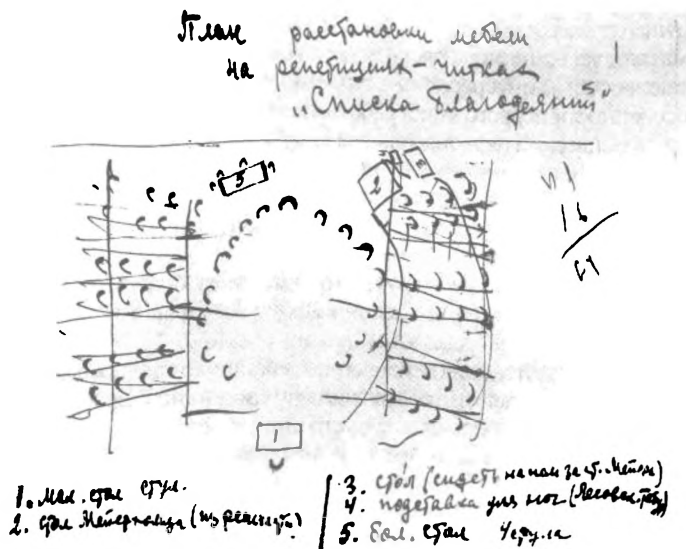 План расстановки мебели
на репетициях-читках
„Списка благодеяний"
1
5
2
3
16
1
1. мал. стол стул.
2. стол Мейерхольда
3. стол (сидеть на нем за ст. Мейерх)
4. подставка для ног
5. бол. стол 4 стула